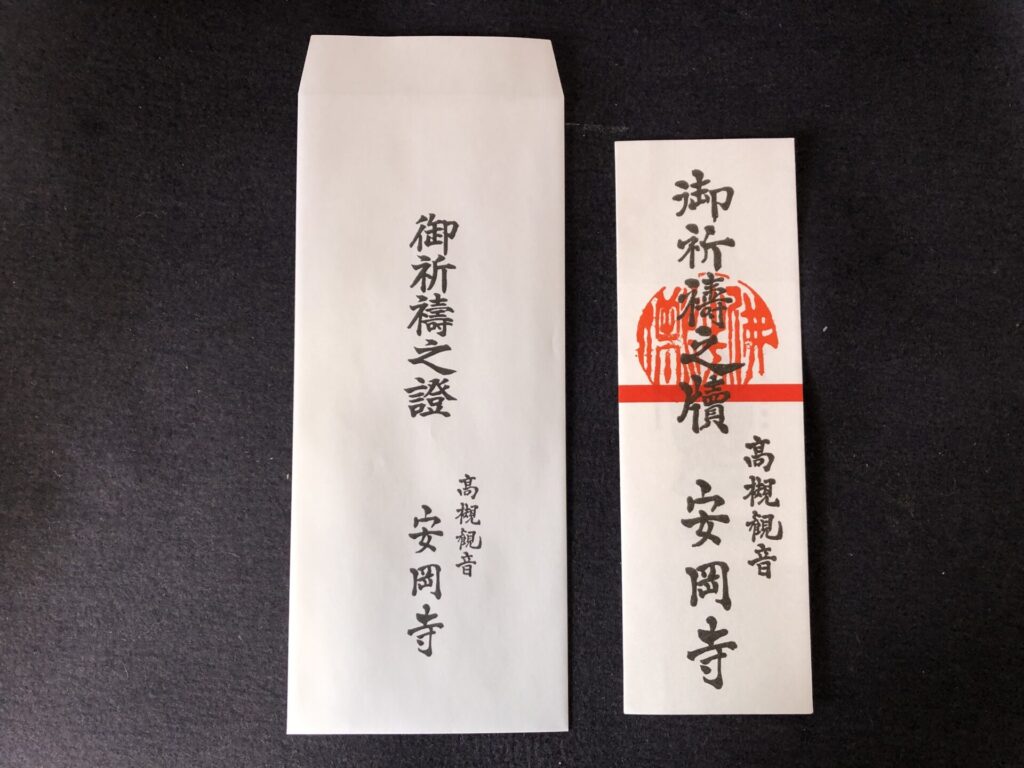 御祈禱之證
高槻観音
安岡寺
御祈禱之牘
高槻観音
安岡寺